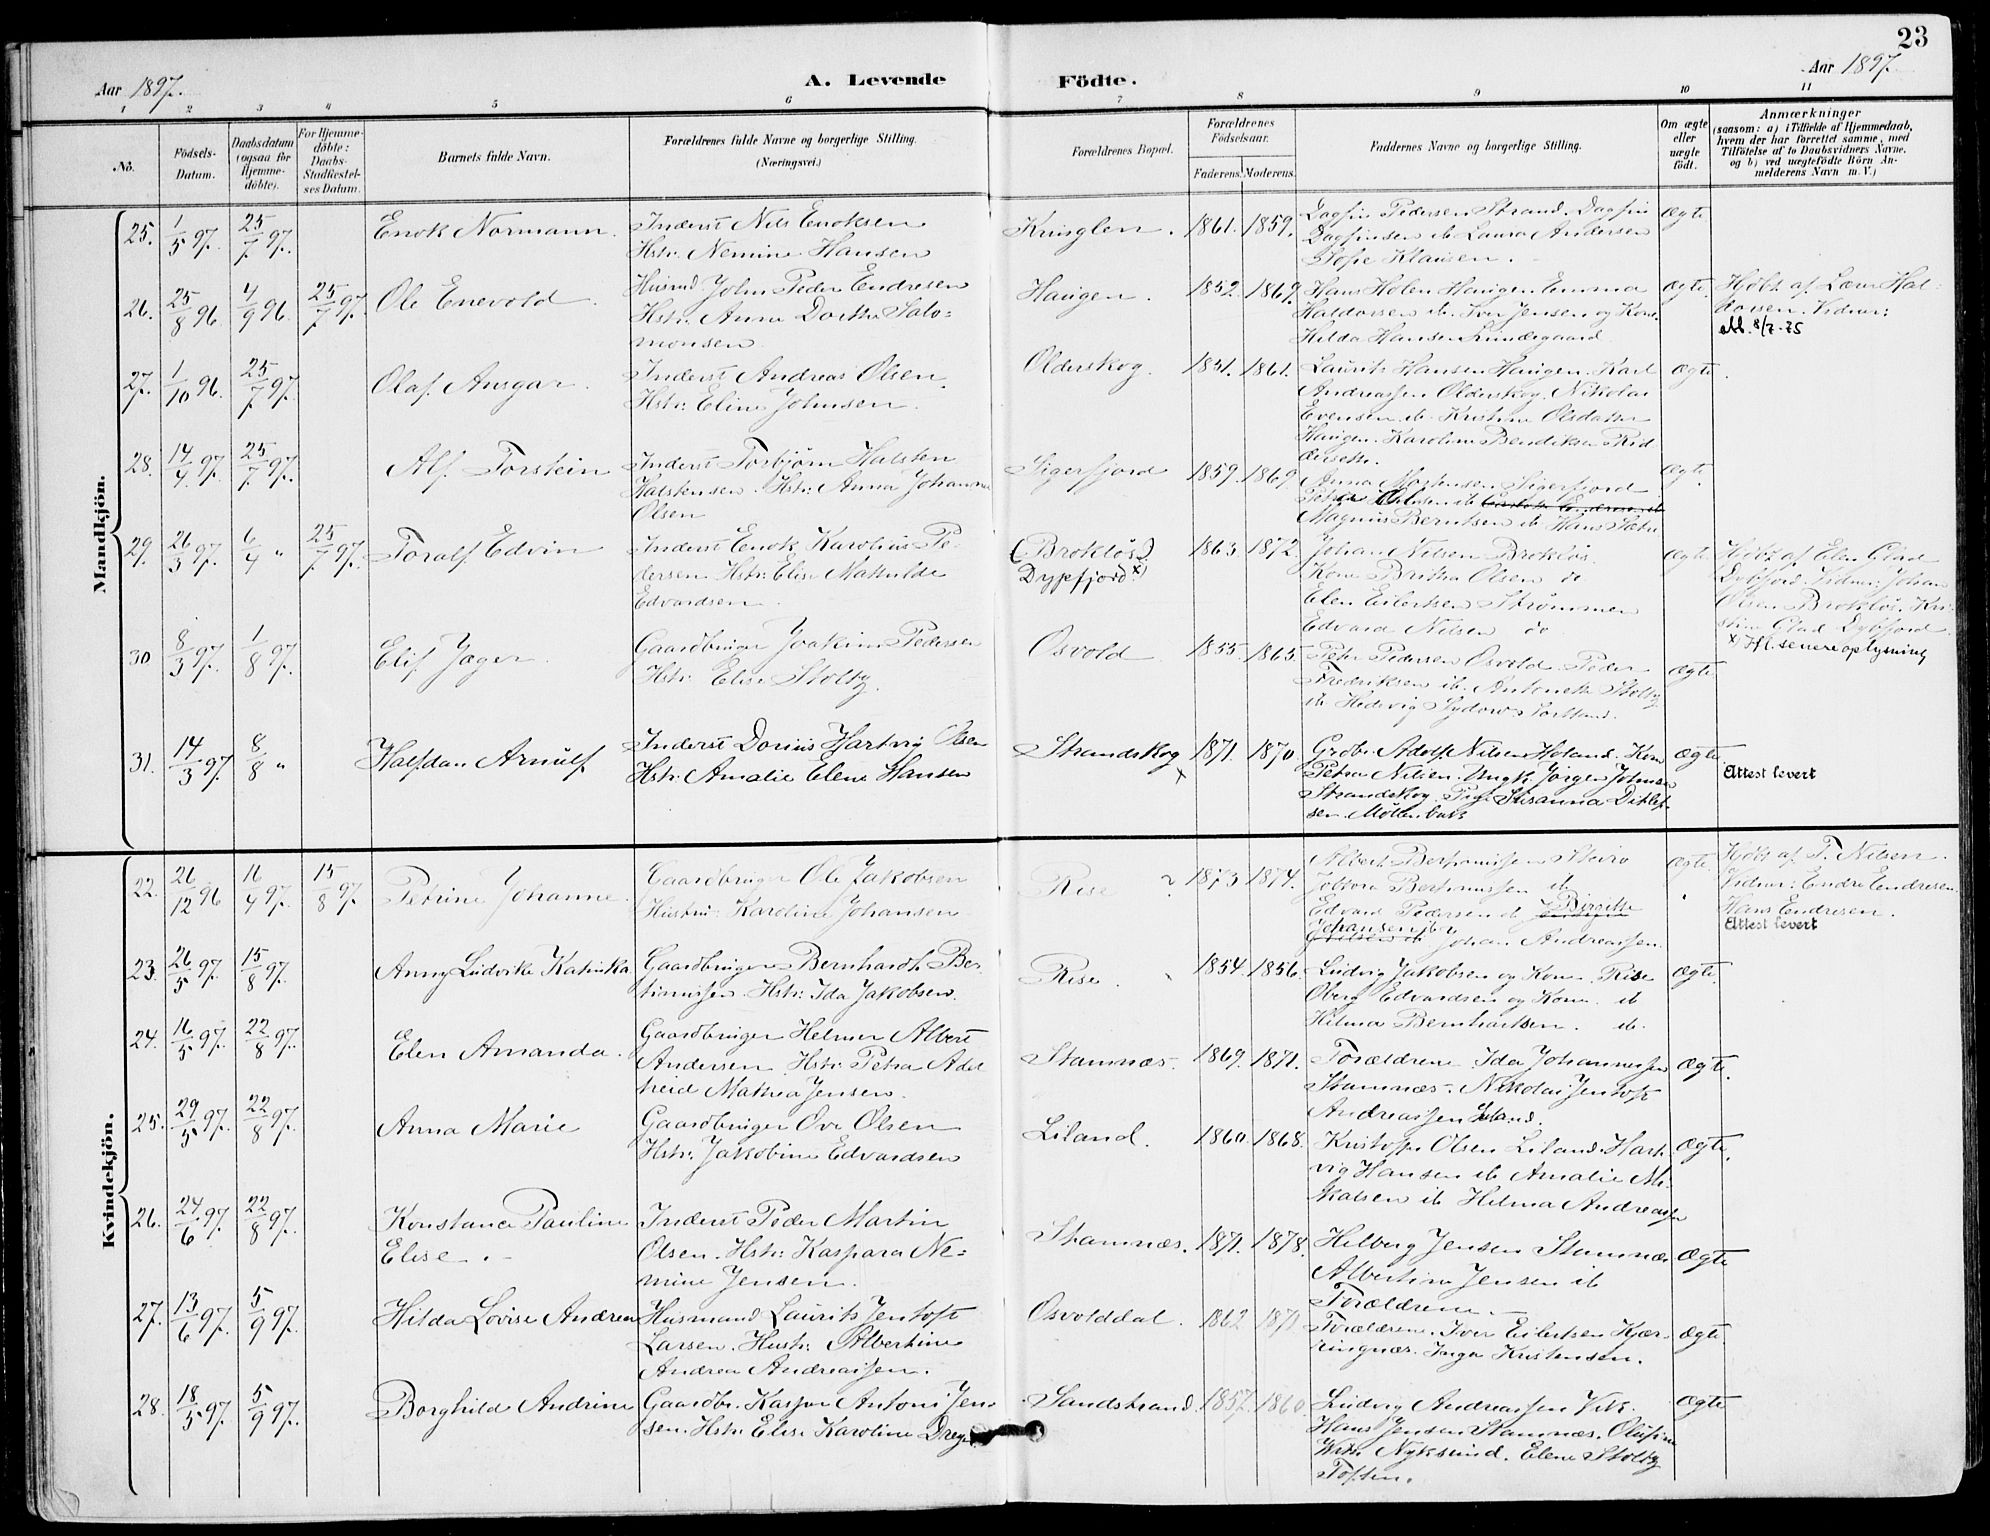 23
Aar 1897.
A. Levende Födte.
Aar 1897.
1 2 3 4 5 6 7 8 9 10 11
No.
Födsels-Datum.
Daabsdatum (ogsaa for Hjemmedöbte).
For Hjemmedöbte: Daabs-Stadfæstelses Datum.
Barnets fulde Navn.
Forældrenes fulde Navne og borgerlige Stilling.
(Næringsvei.)
Forældrenes Bopæl.
Forældrenes Födselsaar.
Faderens. Moderens.
Faddernes Navne og borgerlige Stilling.
Om ægte eller uægte födt.
Anmærkninger
(saasom: a) i Tilfælde af Hjemmedaab,
hvem der har forrettet samme, med
Tilföielse af to Daabsvidners Navne,
og b) ved uægtefödte Börn Anmelderens Navn m. V.)
Mandkjön.
25. 1/5 97. 25/7 97. Enok Normann. Inderst Nils Enoksen
Hstr: Nemine Hansen
Kringlen. 1861. 1859. Dagfin Pedersen Strand. Dagfin
Dagfinsen ib Laura Andersen
Sofie Klausen.
Ægte
26. 25/8 96 4/9 96. 25/7 97. Ole Enevold. Husmd John Peder Endresen
Hstr: Anna Dorthe Salomonsen
Haugen. 1852. 1869. Hans Holen Haugen. Emma
Haldorsen ib. Iver Jensen og Kone.
Hilda Hansen Lundegaard
Ægte. Hjdbt af Haldorsen. Vidner:
att. 8/7-75
27. 1/10 96. 25/7 97. Olaf Ansgar. Inderst Andreas Olsen
Hstr: Eline Johnsen.
Olderskog. 1851. 1861. Laurits Hansen Haugen. Karl
Andreassen Olderskog. Nikolai
Evensen ib. Kristine Olsdatter
Haugen. Karoline Bendiksen
Ægte.
28. 14/4 97. 25/7 97. Alf Torstein Inderst Torbjørn Halsten
Halstensen. Hstr: Anna Johanna
Olsen
Sigerfjord 1859. 1869 Anna Mortensen Sigerfjord
Magnus Berntsen ib
Ægte.
29. 26/3 97. 6/4 „ 25/7 97. Toralf Edvin Inderst Enok Karolius Pedersen
Hstr: Elise Mathilde
Edvardsen.
(Brokløs)
Dypfjord x)
1863. 1872. Johan Nilsen Brokløs
Kone Britha Olsen do
Elen Eilertsen Strømmen
Edvard Nilsen do
Ægte Hjdbt af Elen Glad
Dybfjord. Vidner: Johan
Olsen Brokløs. Kristine
Glad Dybfjord
x) Ifl. senere oplysning
30 8/3 97. 1/8 97. Elif Jager. Gaardbruger Joakim Pedersen
Hstr: Elise Stoltz.
Osvold 1855. 1865. Peter Pedersen Osvold. Peder
Fredriksen ib. Antonette Stoltz
ib Hedevig Sydow Sortland.
Ægte
31. 14/3 97 8/8 „ Halfdan Arnulf Inderst Dorius Hartvig Olsen
Hstr: Amalie Elene Hansen
Strandskog x 1871. 1870. Grdbr. Adolf Nilsen Holand. Kone
Petra Nilsen. Ungk. Jørgen Johnsen
Strandskog. Pige Susanna Ditlefsen
Møllenbakk
Ægte. Attest levert
Kvindekjön.
22. 26/12 96 16/4 97. 15/8 97 Petrine Johanne. Gaardbruger Ole Jakobsen
Hustru: Karoline Johansen
Rise 1873 1874. Albert
Edvard Pedersen Birgitte
Johansen ib. Johan Andreassen.
Ægte Hjdbt af T. Nilsen.
Vidner: Endre Endresen
Hans Endresen.
Attest levert
23. 26/5 97. 15/8 97. Anny Ludvike Katinka Gaardbruger Bernhardt Bertinussen
Hstr: Ida Jakobsen.
Rise. 1854. 1856. Ludvig Jakobsen og Kone. Rise
Oberg Edvardsen og Kone. ib
Hilma Bernhartsen. ib.
Ægte.
24. 16/5 97. 22/8 97. Elen Amanda. Gaardbruger Helmer Albert
Andersen Hstr: Petra Adelheid
Mathea Jensen.
Stamnæs. 1869. 1871. Forældrene Ida Johannessen
Stamnæs. Nikolai Jentoft
Andreassen Liland.
Ægte.
25. 29/5 97. 22/8 97. Anna Marie Gaardbruger Ove Olsen
Hstr: Jakobine Edvardsen
Liland. 1860. 1868. Kristoffer Olsen Liland. Hartvig
Hansen ib Amalie Mikalsen
ib Helma Andreassen
Ægte.
26. 24/6 97. 22/8 97. Konstance Pauline
Elise. Inderst Peder Martin
Olsen. Hstr: Kaspara Nemine
Jensen.
Stamnæs. 1871. 1878. Hilberg Jensen Stamnæs
Albertina Jensen ib
Forældrene.
Ægte
27. 13/6 97. 5/9 97. Hilda Lovise Andrea Husmand Laurits Jentoft
Larsen. Hustr: Albertine
Andrea Andreassen.
Osvolddal. 1862 1871 Forældrene. Iver Eilertsen Kjærringnæs.
Inga Kristensen.
Ægte.
28. 18/5 97. 5/9 97. Borghild Andrine Gaardbr. Kasper Antoni Jensen.
Hstr: Elise Karoline Dreyer
Sandstrand. 1857. 1860. Ludvig Andreassen Vik.
Hans Jensen Stamnæs. Olufine
Nyksund. Elene Stoltz
Toften.
Ægte